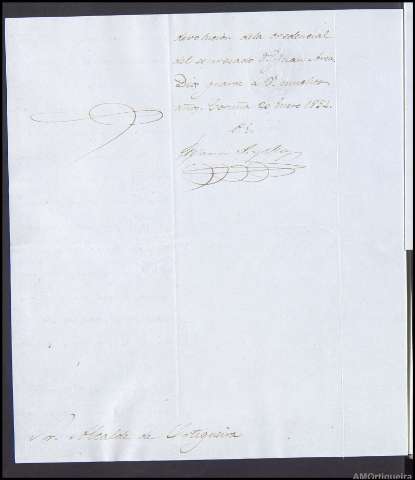 devolucion de la credencial
del espresado D. Juan
Dios guarde à V. muchos
años. Coruña 20 Enero 1852.
Sor. Alcalde de Ortigueira
AMOrtigueira